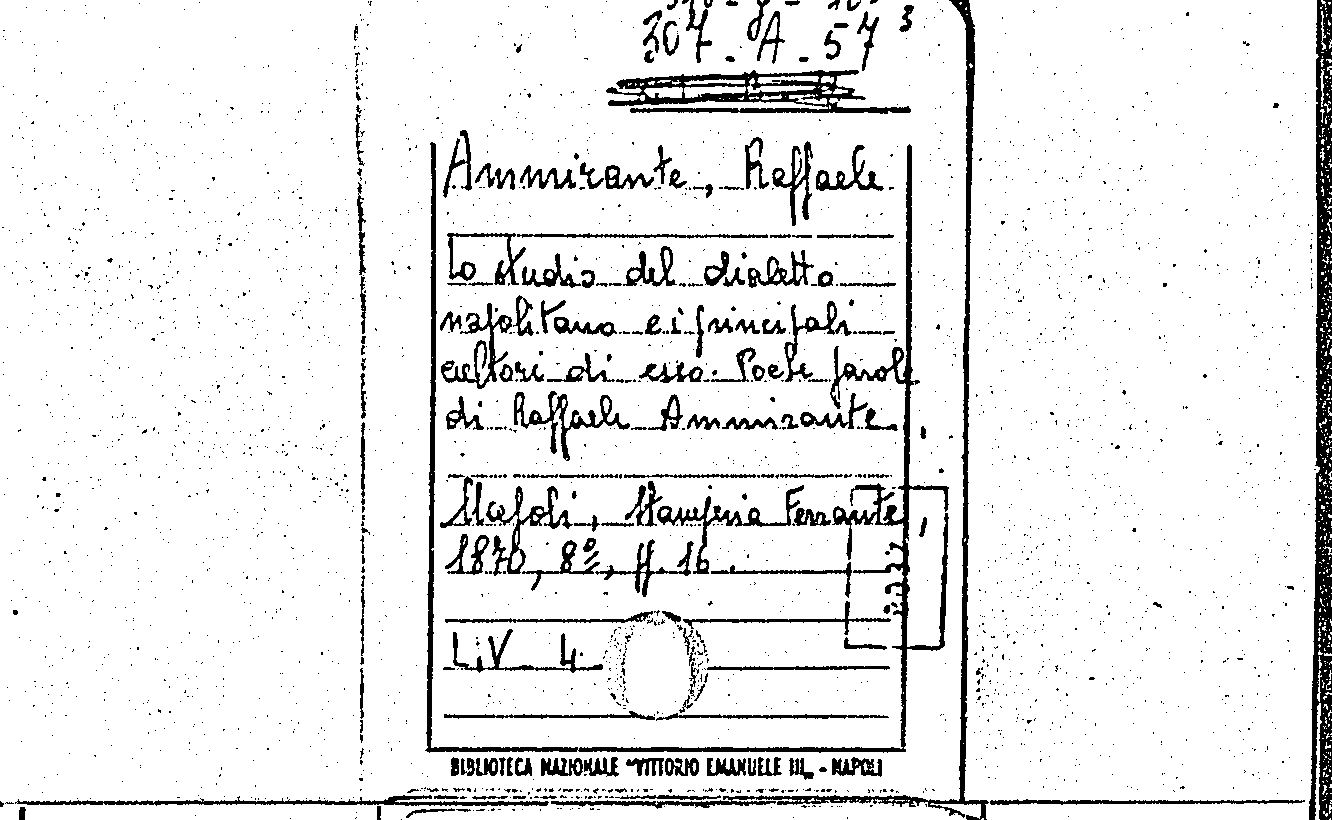 307 - A - 57 3
Ammirante, Raffaele
Lo studio del dialetto
napolitano e i principali
cultori di esso. Poche parole
di Raffaele Ammirante.
Napoli, Stamperia Ferrante,
1870, 8º, pp. 16.
L.V 4
BIBLIOTECA NAZIONALE "VITTORIO EMANUELE III„ - NAPOLI